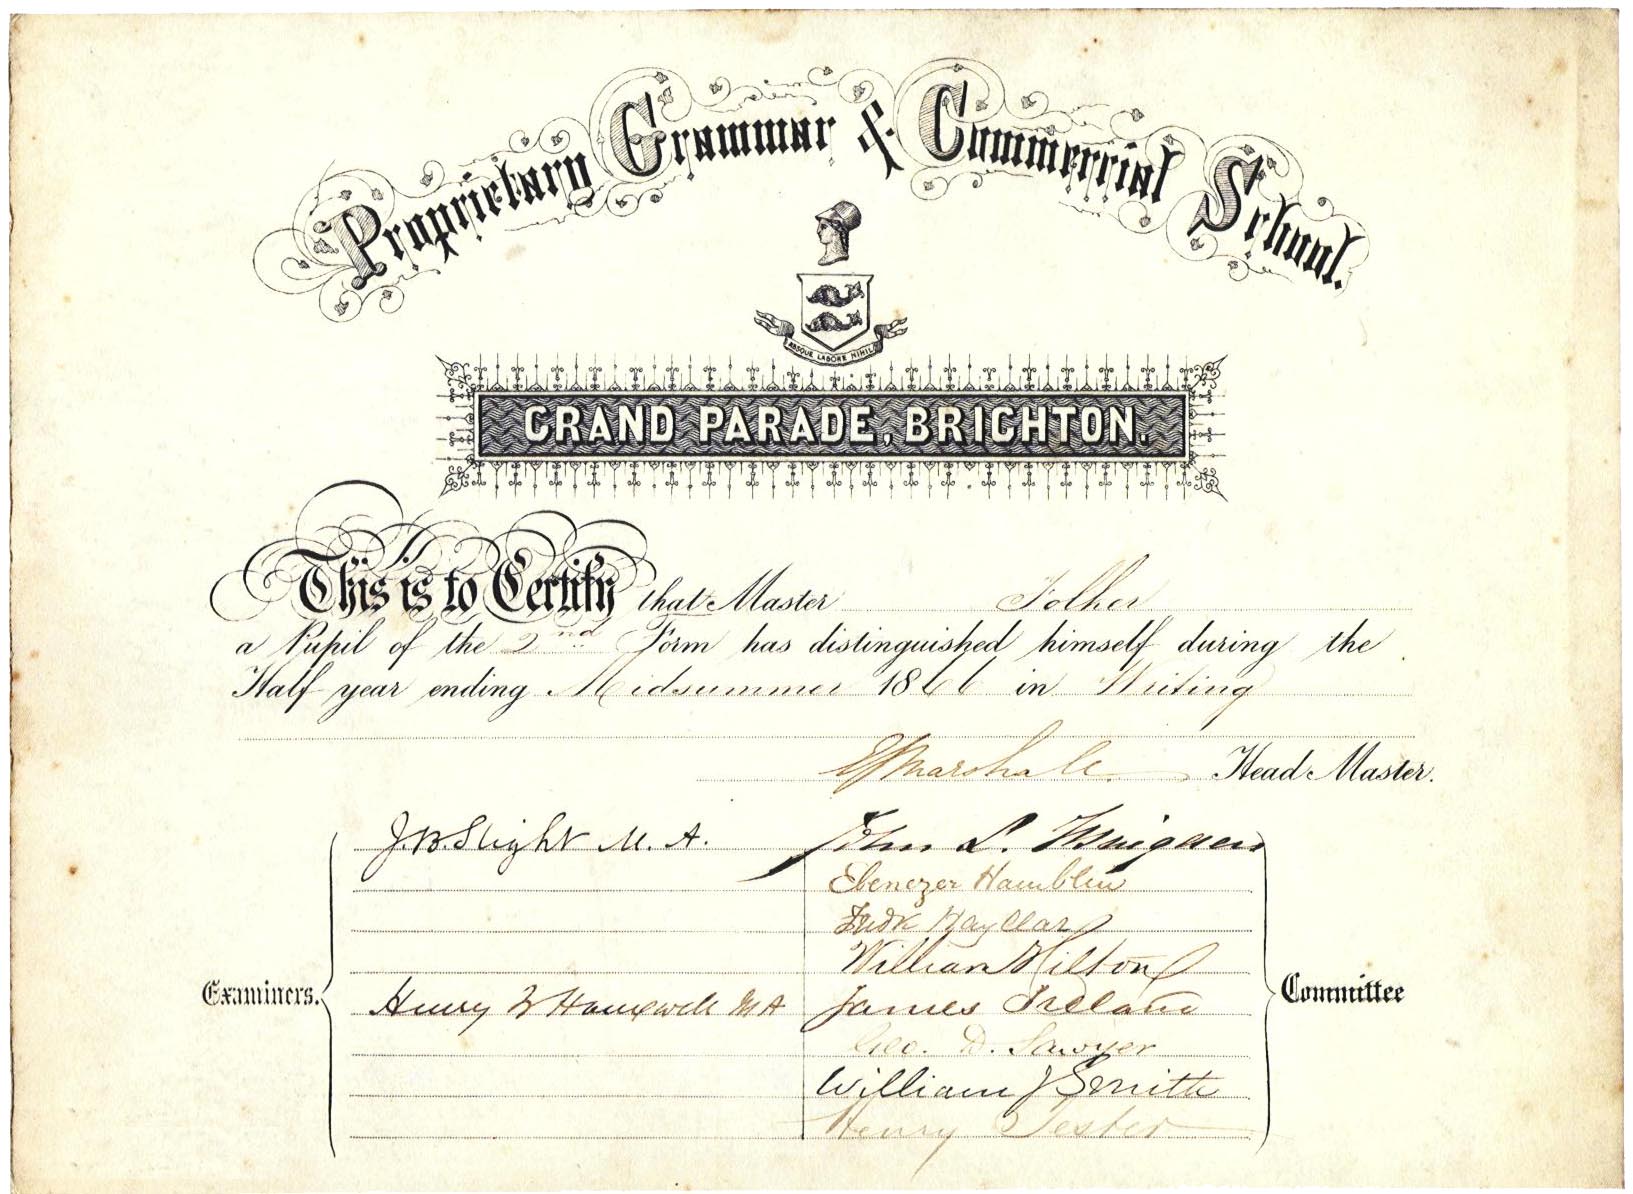 Proprietary Grammar & Commercial School.
ABSQUE LABORE NIHIL
GRAND PARADE, BRIGHTON.
This is to Certify that Master Folker
a Pupil of the 2nd Form has distinguished himself during the
Half year ending Midsummer 1866 in Writing
E J Marshall Head Master.
Examiners.
J.B. Slight M. A.
Henry M A
John L.
Ebenezer Hamblin
Fredk Hayllar
William Hilton
James Ireland
Geo. D. Sawyer
William J Smith
Henry Tester
Committee